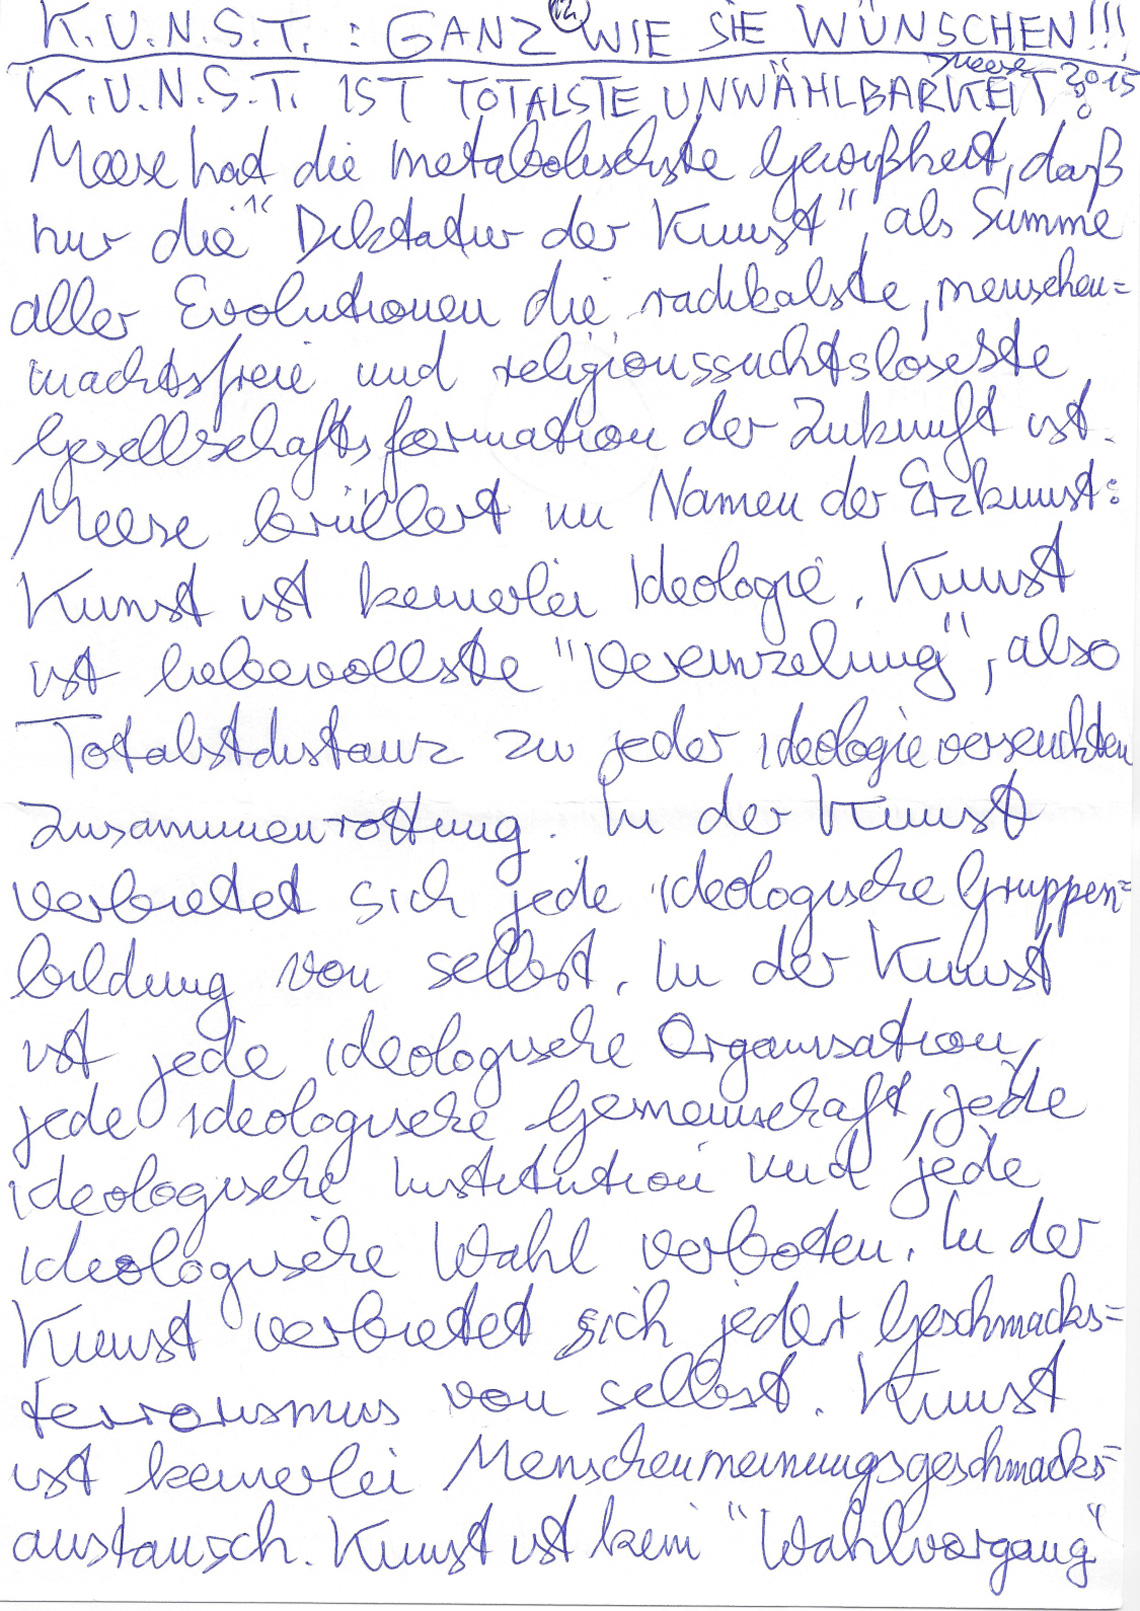 12.
K.U.N.S.T.: GANZ WIE SIE WÜNSCHEN!!!
Meese 2015
K.U.N.S.T. IST TOTALSTE UNWÄHLBARKEIT:
Meese hat die metabolischste Gewißheit, daß
nur die "Diktatur der Kunst", als Summe
aller Evolutionen die radikalste, menschen=
machtsfreie und religionssuchtsloseste
Gesellschaftsformation der Zukunft ist.
Meese brüllert im Namen der Erzkunst:
Kunst ist keinerlei Ideologie. Kunst
ist liebevollste "Vereinzelung", also
Totalstdistanz zu jeder ideologieverseuchten
Zusammenrottung. In der Kunst
verbietet sich jede ideologische Gruppen=
bildung von selbst. In der Kunst
ist jede ideologische Organisation,
jede ideologische Gemeinschaft, jede
ideologische Institution und jede
ideologische Wahl verboten. In der
Kunst verbietet sich jeder Geschmacks=
terrorismus von selbst. Kunst
ist keinerlei Menschenmeinungsgeschmacks=
austausch. Kunst ist kein "Wahlvorgang"